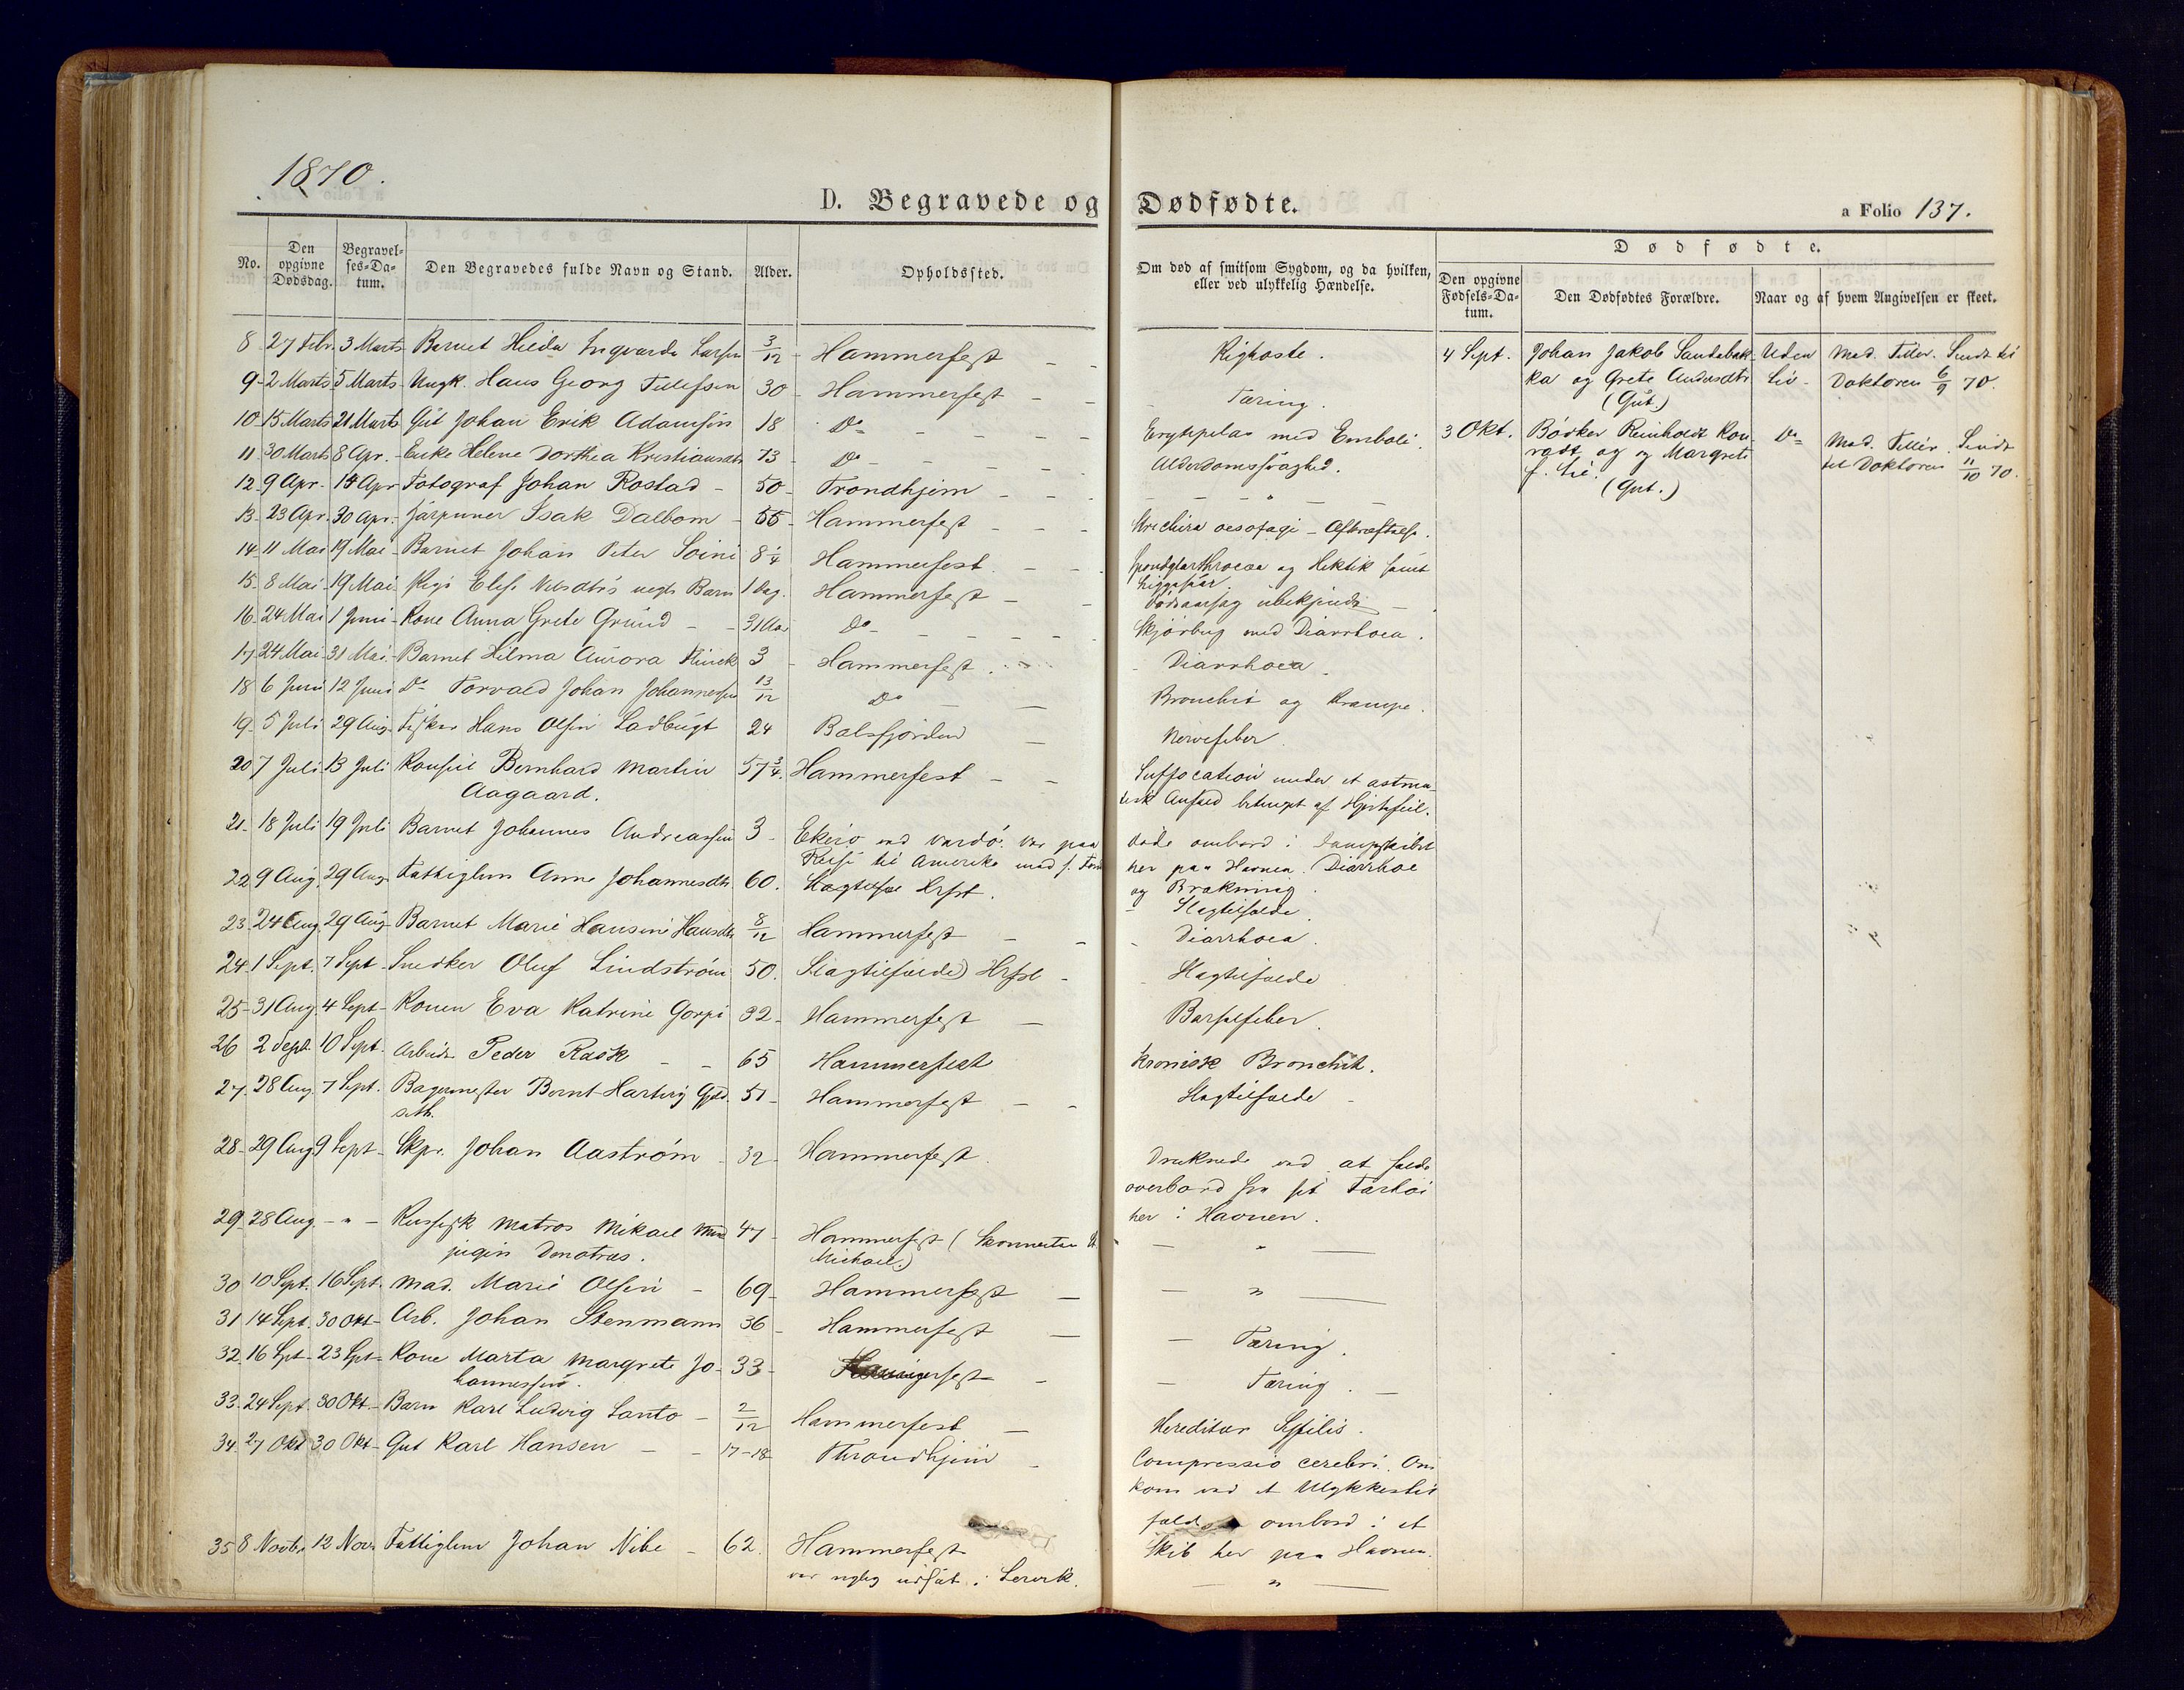 1870.
D. Begravede og Dødfødte.
a Folio 137.
No.
Den opgivne Dødsdag.
Begravelses-Datum.
Den Begravedes fulde Navn og Stand.
Alder.
Opholdssted.
Om død af smitsom Sygdom, og da hvilken, eller ved ulykkelig Hændelse.
Dødfødte.
Den opgivne Fødsels-Datum.
Den Dødfødtes Forældre.
Naar og af hvem Angivelsen er skeet.
8 27 Febr. 3 Marts Barnet Hilda Ingvarda Larsen 3/12 Hammerfest - - Kighoste.
9 2 Marts 5 Marts Ungk. Hans Georg Tellefsen 30 Hammerfest - - Tæring.
10 15 Marts 21 Marts Gut Johan Erik Adamsen 18 Do - - - Erysipelas med Emboli.
11 30 Marts 8 Apr. Enke Helene Dorthea Kristiansdtr 73 Do - - - Alderdomssvaghed.
12 9 Apr. 14 Apr Fotograf Johan Rostad - 50 Trondhjem - - - - " - -
13 23 Apr. 30 Apr. Isak Dalbom - 55 Hammerfest - - - oesofagi - Afkræftelse.
14 11 Mai 19 Mai Barnet Johan Peter Soini 8 1/4 Hammerfest - - Spondylarthrocace og Hektik samt
Liggesaar.
15 8 Mai 19 Mai Pige Elise Nilsdtrs uegte Barn 1 Dag. Hammerfest - - Dødsaarsag ubekjendt -
16 24 Mai 1 Juni Kone Anna Grete Grund - - 31 Do - - - Skjørbug med Diarrhoea.
17 24 Mai 31 Mai Barnet Hilma Aurora 3 Hammerfest - Diarrhoea.
18 6 Juni 12 Juni Do Torvald Johan Johannessen 13/12 Do - - Bronchit og Krampe.
19 5 Juli 29 Aug. Fisker Hans Olsen Ladbugt 24 Balsfjorden - Nervefeber.
20 7 Juli 13 Juli Konsul Bernhard Martin 57 3/4 Hammerfest - - Suffocation under et astma-
Aagaard. tisk Anfald betinget af Hjertefeil.
21 18 Juli 19 Juli Barnet Johannes Andreassen 3 Ekerø ved Vardø. Var paa Døde ombord i Dampskibet
Reise til Amerika med s. her paa Havnen. Diarrhoe
og Brækning.
22 9 Aug. 29 Aug. Fattiglem Anne Johannesdtr. 60. Hrfst. - Slagtilfælde.
23 24 Aug. 29 Aug. Barnet Marie Hansine Hansdtr 8/12 Hammerfest - - - Diarrhoea.
24 1 Sept. 7 Sept Snedker Oluf Lindstrøm 50. (Slagtilfælde) Hrfst - Slagtilfælde
25 31 Aug. 4 Sept Konen Eva Katrine Gorpi 32 Hammerfest - Barselfeber.
26 2 Sept. 10 Sept. Arbeidr. Peder Rask - - 65 Hammerfest Kronisk Bronchit.
27 28 Aug. 7 Sept. Bagermester Bernt Hartvig Gjed- 51 Hammerfest - - Slagtilfælde -
seth.
28 29 Aug 9 Sept Skpr. Johan Aastrøm - 32 Hammerfest. Druknede ved at falde
overbord fra sit Fartøi
her i Havnen.
29 28 Aug - " - Russisk Matros Mikael 47 Hammerfest (Skonnerten St. - " -
Michael.)
30 10 Sept. 16 Sept. Mad. Marie Olsen - 69 Hammerfest - - " -
31 14 Sept. 30 Okt Arb. Johan Stenmann 36 Hammerfest - - Tæring.
32 16 Spt 23 Spt Kone Marta Margrete Jo- 33 Hammerfest - - Tæring. -
hannessen.
33 24 Sept. 30 Okt. Barn Karl Ludvig Lanto - 2/12 Hammerfest - Hereditær Syfilis.
34 27 Okt 30 Okt Gut Karl Hansen - - 17-18 Throndhjem - Compressio cerebri. Om-
kom ved et Ulykkestil-
fælde ombord i et
Skib her paa Havnen.
35 8 Novbr. 12 Nov. Fattiglem Johan Nibe - 62. Hammerfest - " -
var nylig udsat i Lervik.
4 Sept. Johan Jakob Sandabak- Uden Mad. Teller. Sendt til
ka og Grete Andersdtr Liv. Doktoren 6/9 70.
(Gut.)
3 Okt. Bødker Reinholdt Kon- Do Mad. Teller. Sendt
radt og og Margrete til Doktoren 11/10 70.
f. Lie.
(Gut.)